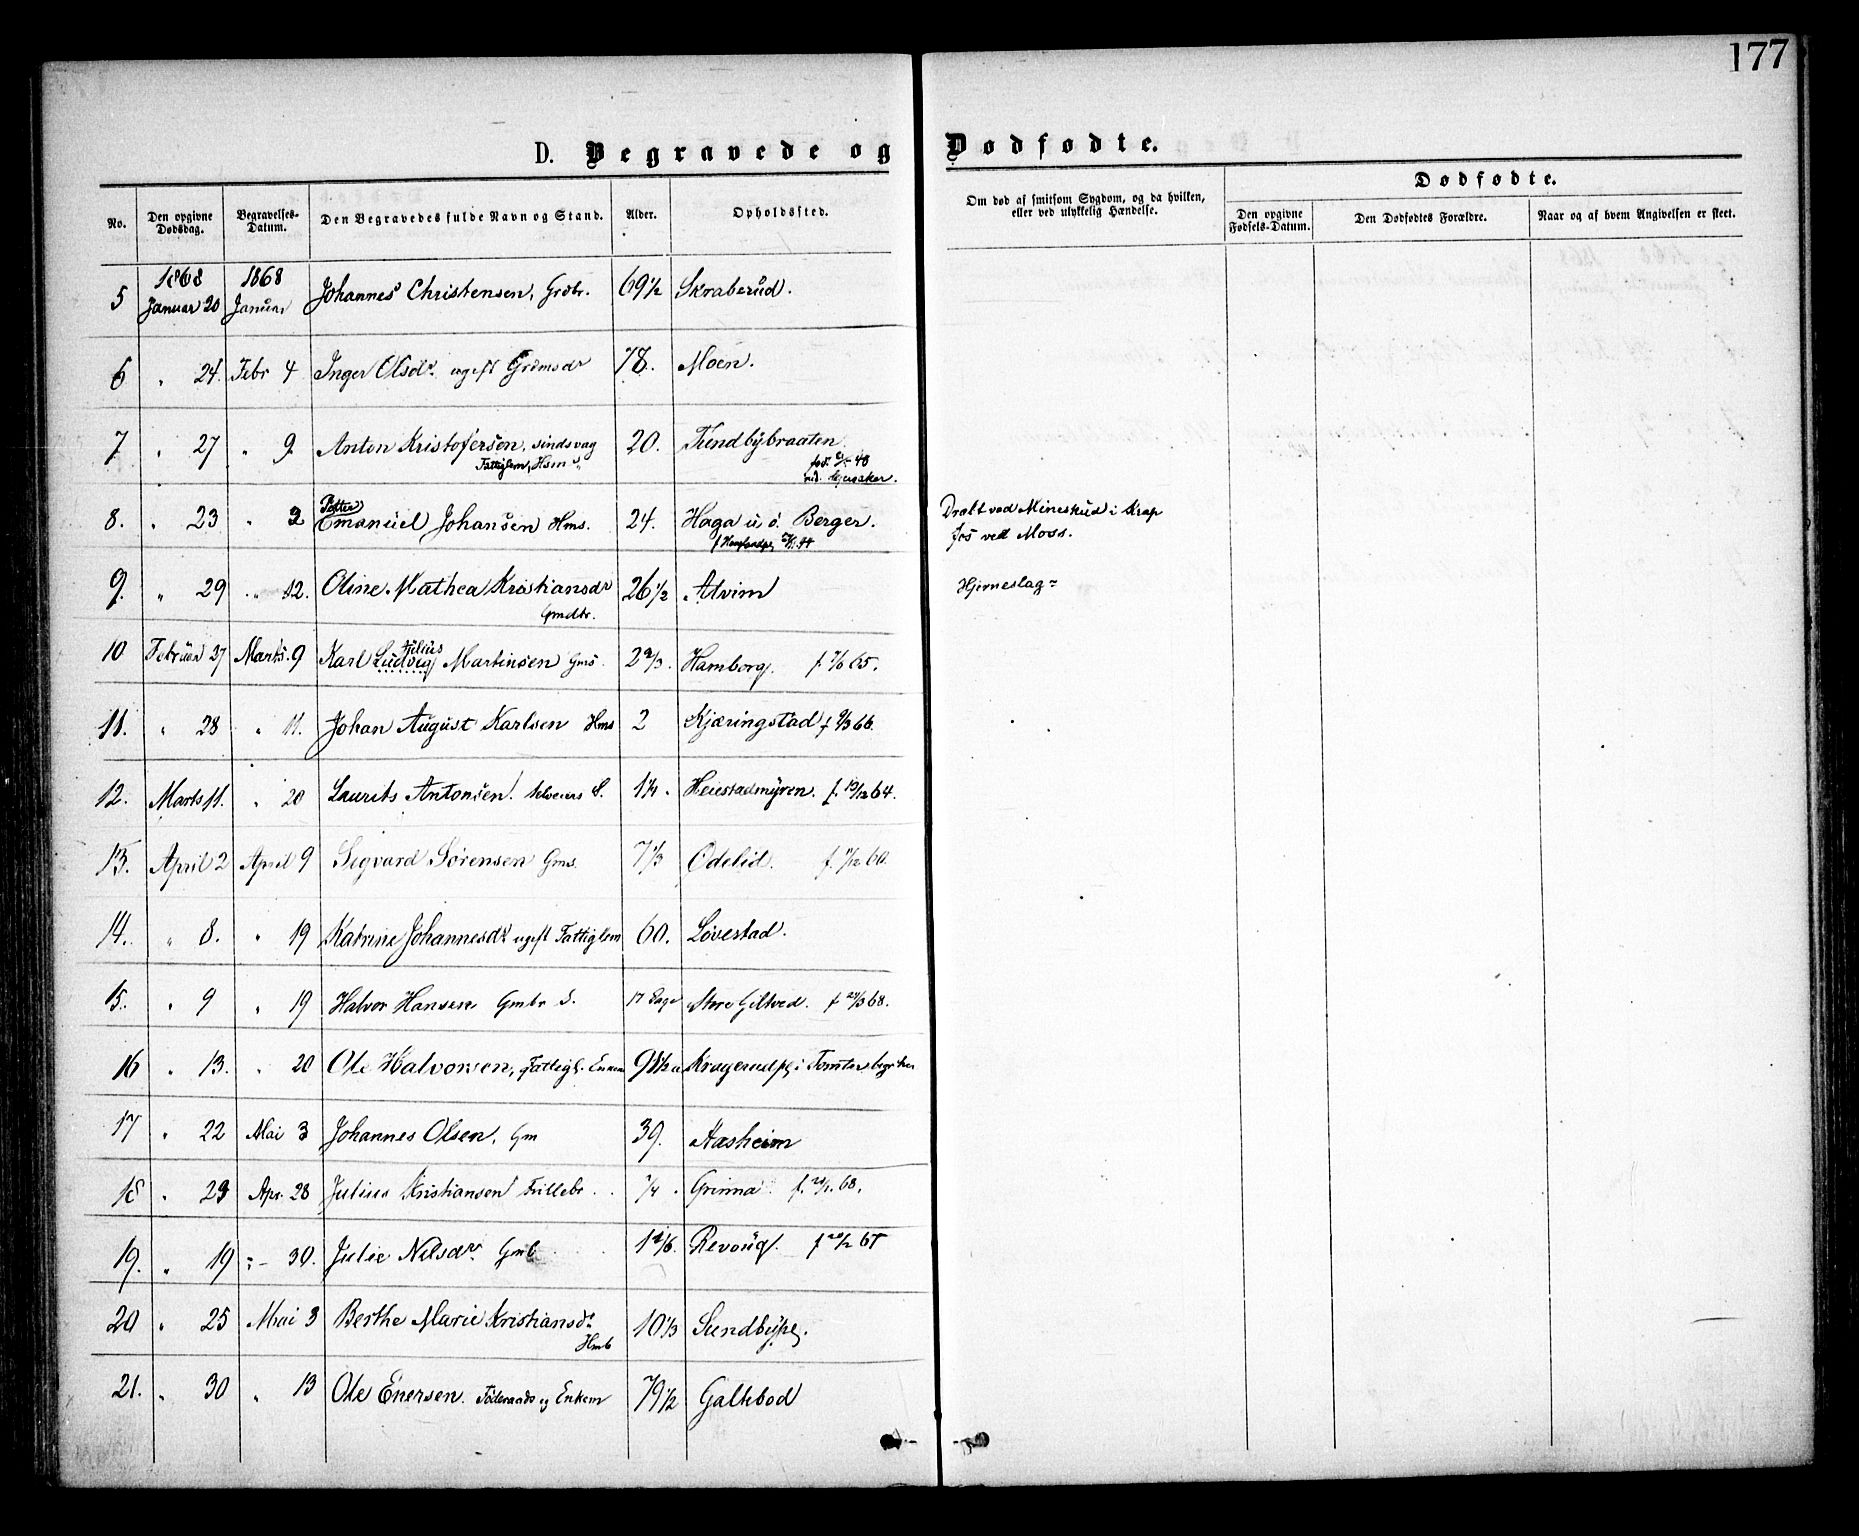 177
D. Begravede og Dødfødte.
No. Den opgivne Dødsdag. Begravelses-Datum. Den Begravedes fulde Navn og Stand. Alder. Opholdssted. Om død af smitsom Sygdom, og da hvilken, eller ved ulykkelig Hændelse. Dødfødte.
Den opgivne Fødsels-Datum. Den Dødfødtes Forældre. Naar og af hvem Angivelsen er skeet.
1868 1868
5 Januar 20 Januar Johannes Christensen, Grdbr. 69 1/2 Skraberud.
6 " 24. Febr 4 Inger Olsdr. ugift Grdmsdr 78. Moen.
7 " 27 " 9 Anton Kristofersen, sindsvag 20. Tundbybraaten
Fattiglem, Hsm
Petter
8. " 23 " 2 Emanuel Johansen Hms. 24. Haga u. ø. Berger. Dræbt ved Mineskud i Krap
fos ved Moss.
9. " 29 " 12. Oline Mathea Kristiansdr 26 1/2 Alvim Hjerneslag
Gmdtr.
Julius
10 Februar 27 Marts 9 Karl Ludvig Martinsen Gms. 2 2/3. Hamborg. f. 7/6 65.
11. " 28 " 11. Johan August Karlsen Hms 2 Kjæringstad f 9/3 66.
12. Marts 11. " 20 Laurits Antonsen. Selveiers S. 1 1/4. Heiestadmyren. f. 19/12 64.
13. April 2 April 9 Sigvard Sørensen Gms. 7 1/3 Odelid. f. 11/12 60.
14. " 8. " 19 Katrine Johannesdr ugift Fattiglem 60. Løvestad.
15. " 9 " 19 Halvor Hansen Gmbr S. 17 Dage Store Giltved. f 23/3 68.
16 " 13. " 20 Ole Halvorsen, Fattigl. Enkem 91 1/2 Kragerudpl. i Tomter
17 " 22 Mai 3 Johannes Olsen, Gm 39. Aasheim
18 " 23 Apr. 28 Julius Kristiansen Fillebr. 1/4. Grinna f. 68.
19. " 19 " 30. Julie Nilsdr. Gmb 1 2/6. Revoug. f 20/2 67
20 " 25 Mai 3 Berthe Marie Kristiansdr 10 1/3 Sundbypl.
Hmb
21. " 30 " 13 Ole Enersen. Føderaads og Enkem 79 1/2 Galtebod